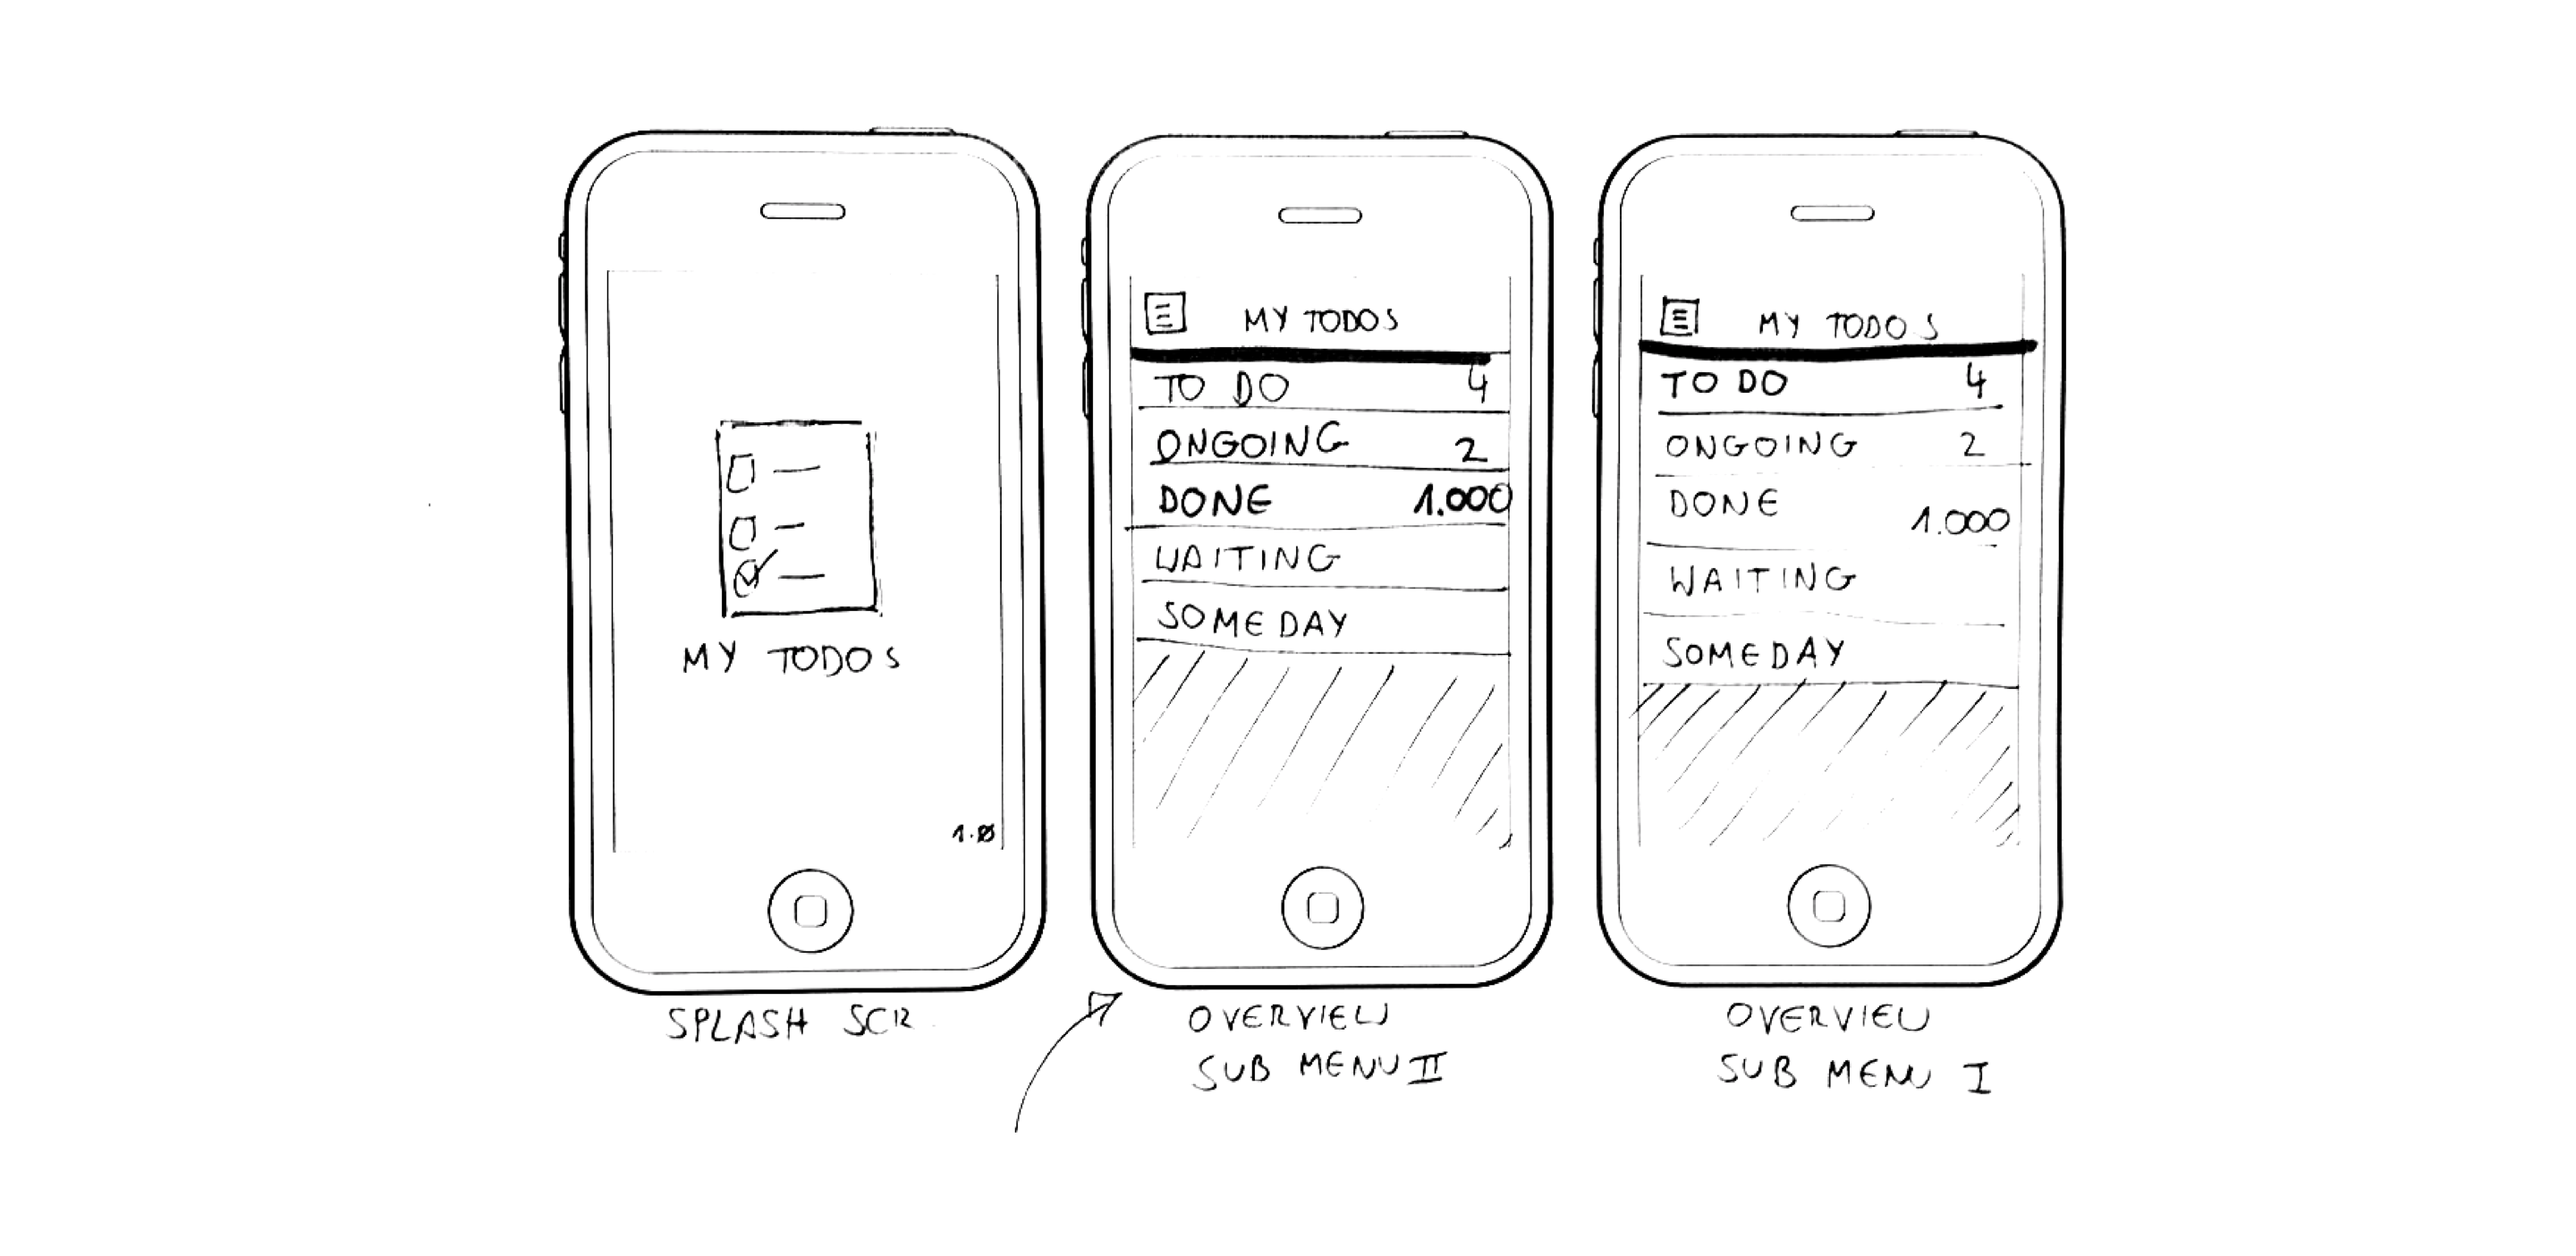 MY TODOS
1.0
SPLASH SCR
MY TODOS
TO DO 4
ONGOING 2
DONE 1.000
WAITING
SOMEDAY
OVERVIEW
SUB MENU II
MY TODOS
TO DO 4
ONGOING 2
DONE 1.000
WAITING
SOMEDAY
OVERVIEW
SUB MENU I